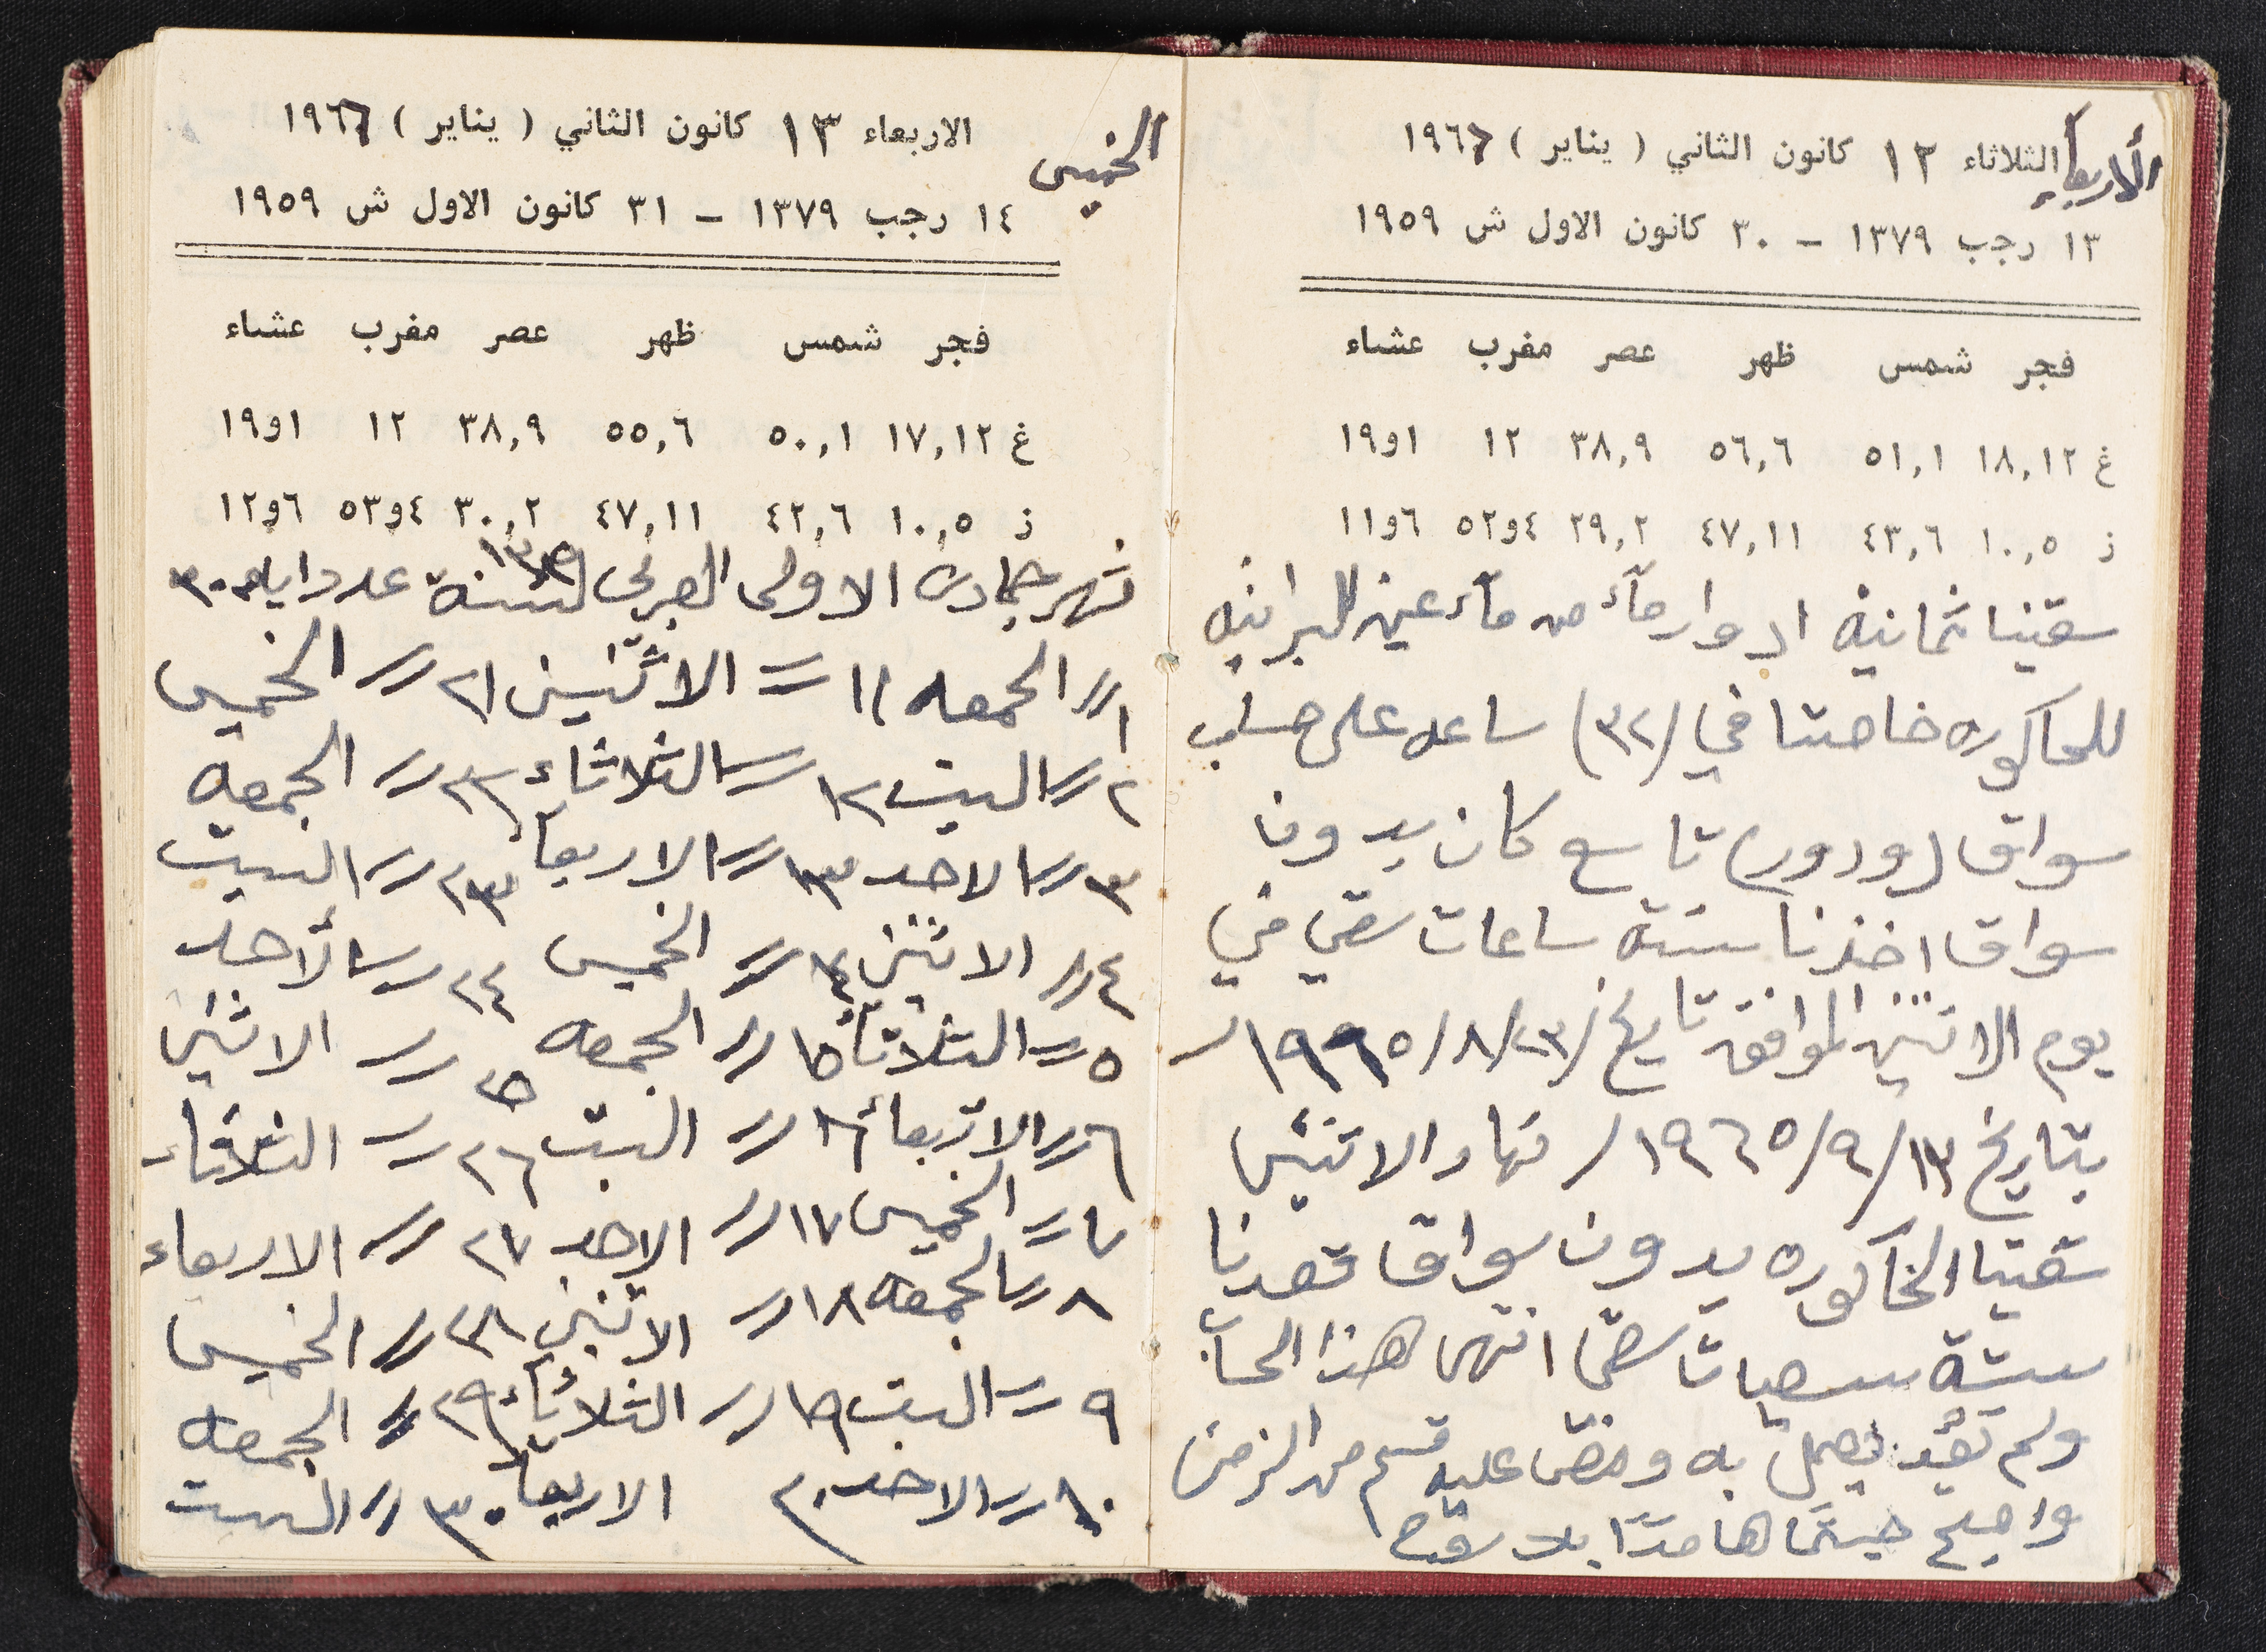 الأربعاء
الثلاثاء ١٢ كانون الثاني ( يناير ) ١٩٦٦
١٣ رجب ١٣٧٩ – ٣٠ كانون الاول ش ١٩٥٩
فجر شمس ظهر عصر مغرب عشاء
غ ١٨,١٢ ٥١,١ ٥٦,٦ ٣٨,٩ ١٢ ١و١٩
ز ١٠,٥ ٤٣,٦ ٤٧,١١ ٢٩,٢ ٤و٥٢ ٦و١١
سقينا ثمانية ادوار مآء من مآء عين البرانيه
للحاكوره خاصتنا في (٣٢) ساعه على حساب
سواق (ودور) تاسع كان بدون
سواق اخذنا ستة ساعات سقي في
يوم الاثنين الموافق تاريخ /٢٣/٨/١٩٦٥ ر
بتاريخ ١٣/٩/١٩٦٥ر نهار الاثنين
سقينا الحاكوره بدون سواق
ستة انتهى هذا الحساب
ولم نعد نعمل به ومضى عليه قسم من الزمن
واصبح
الخميس
الاربعاء ١٣ كانون الثاني ( يناير ) ١٩٦٦
١٤ رجب ١٣٧٩ – ٣١ كانون الاول ش ١٩٥٩
فجر شمس ظهر عصر مغرب عشاء
غ ١٧,١٢ ٥٠,١ ٥٥,٦ ٣٨,٩ ١٢ ١و١٩
ز ١٠,٥ ٤٢,٦ ٤٧,١١ ٣٠,٢ ٤و٥٣ ٦و١٢
شهر جمادى الاولى العربي لسنة عدد ايامه ٣٠
١ // الجمعه ١١ // الاثنين ٢١ // الخميس
٢ // السبت ١٢ // الثلاثاء ٢٢ // الجمعه
٣ // الاحد ١٣ // الاربعا ٢٣ // السبت
٤ // الاثنين ١٤ // الخميس ٢٤ // الأحد
٥ // الثلاثا ١٥ // الجمعه ٢٥ // الاثنين
٦ // الاربعاء ١٦ // السبت ٢٦ // الثلاثاء
٧ // الخميس ١٧ // الاحد ٢٧ // الاربعاء
٨ // الجمعه ١٨ // الاثنين ٢٨ // الخميس
٩ // السبت ١٩ // الثلاثاء ٢٩ // الجمعه
١٠ // الاحد ٢٠ الاربعا ٣٠ // السبت